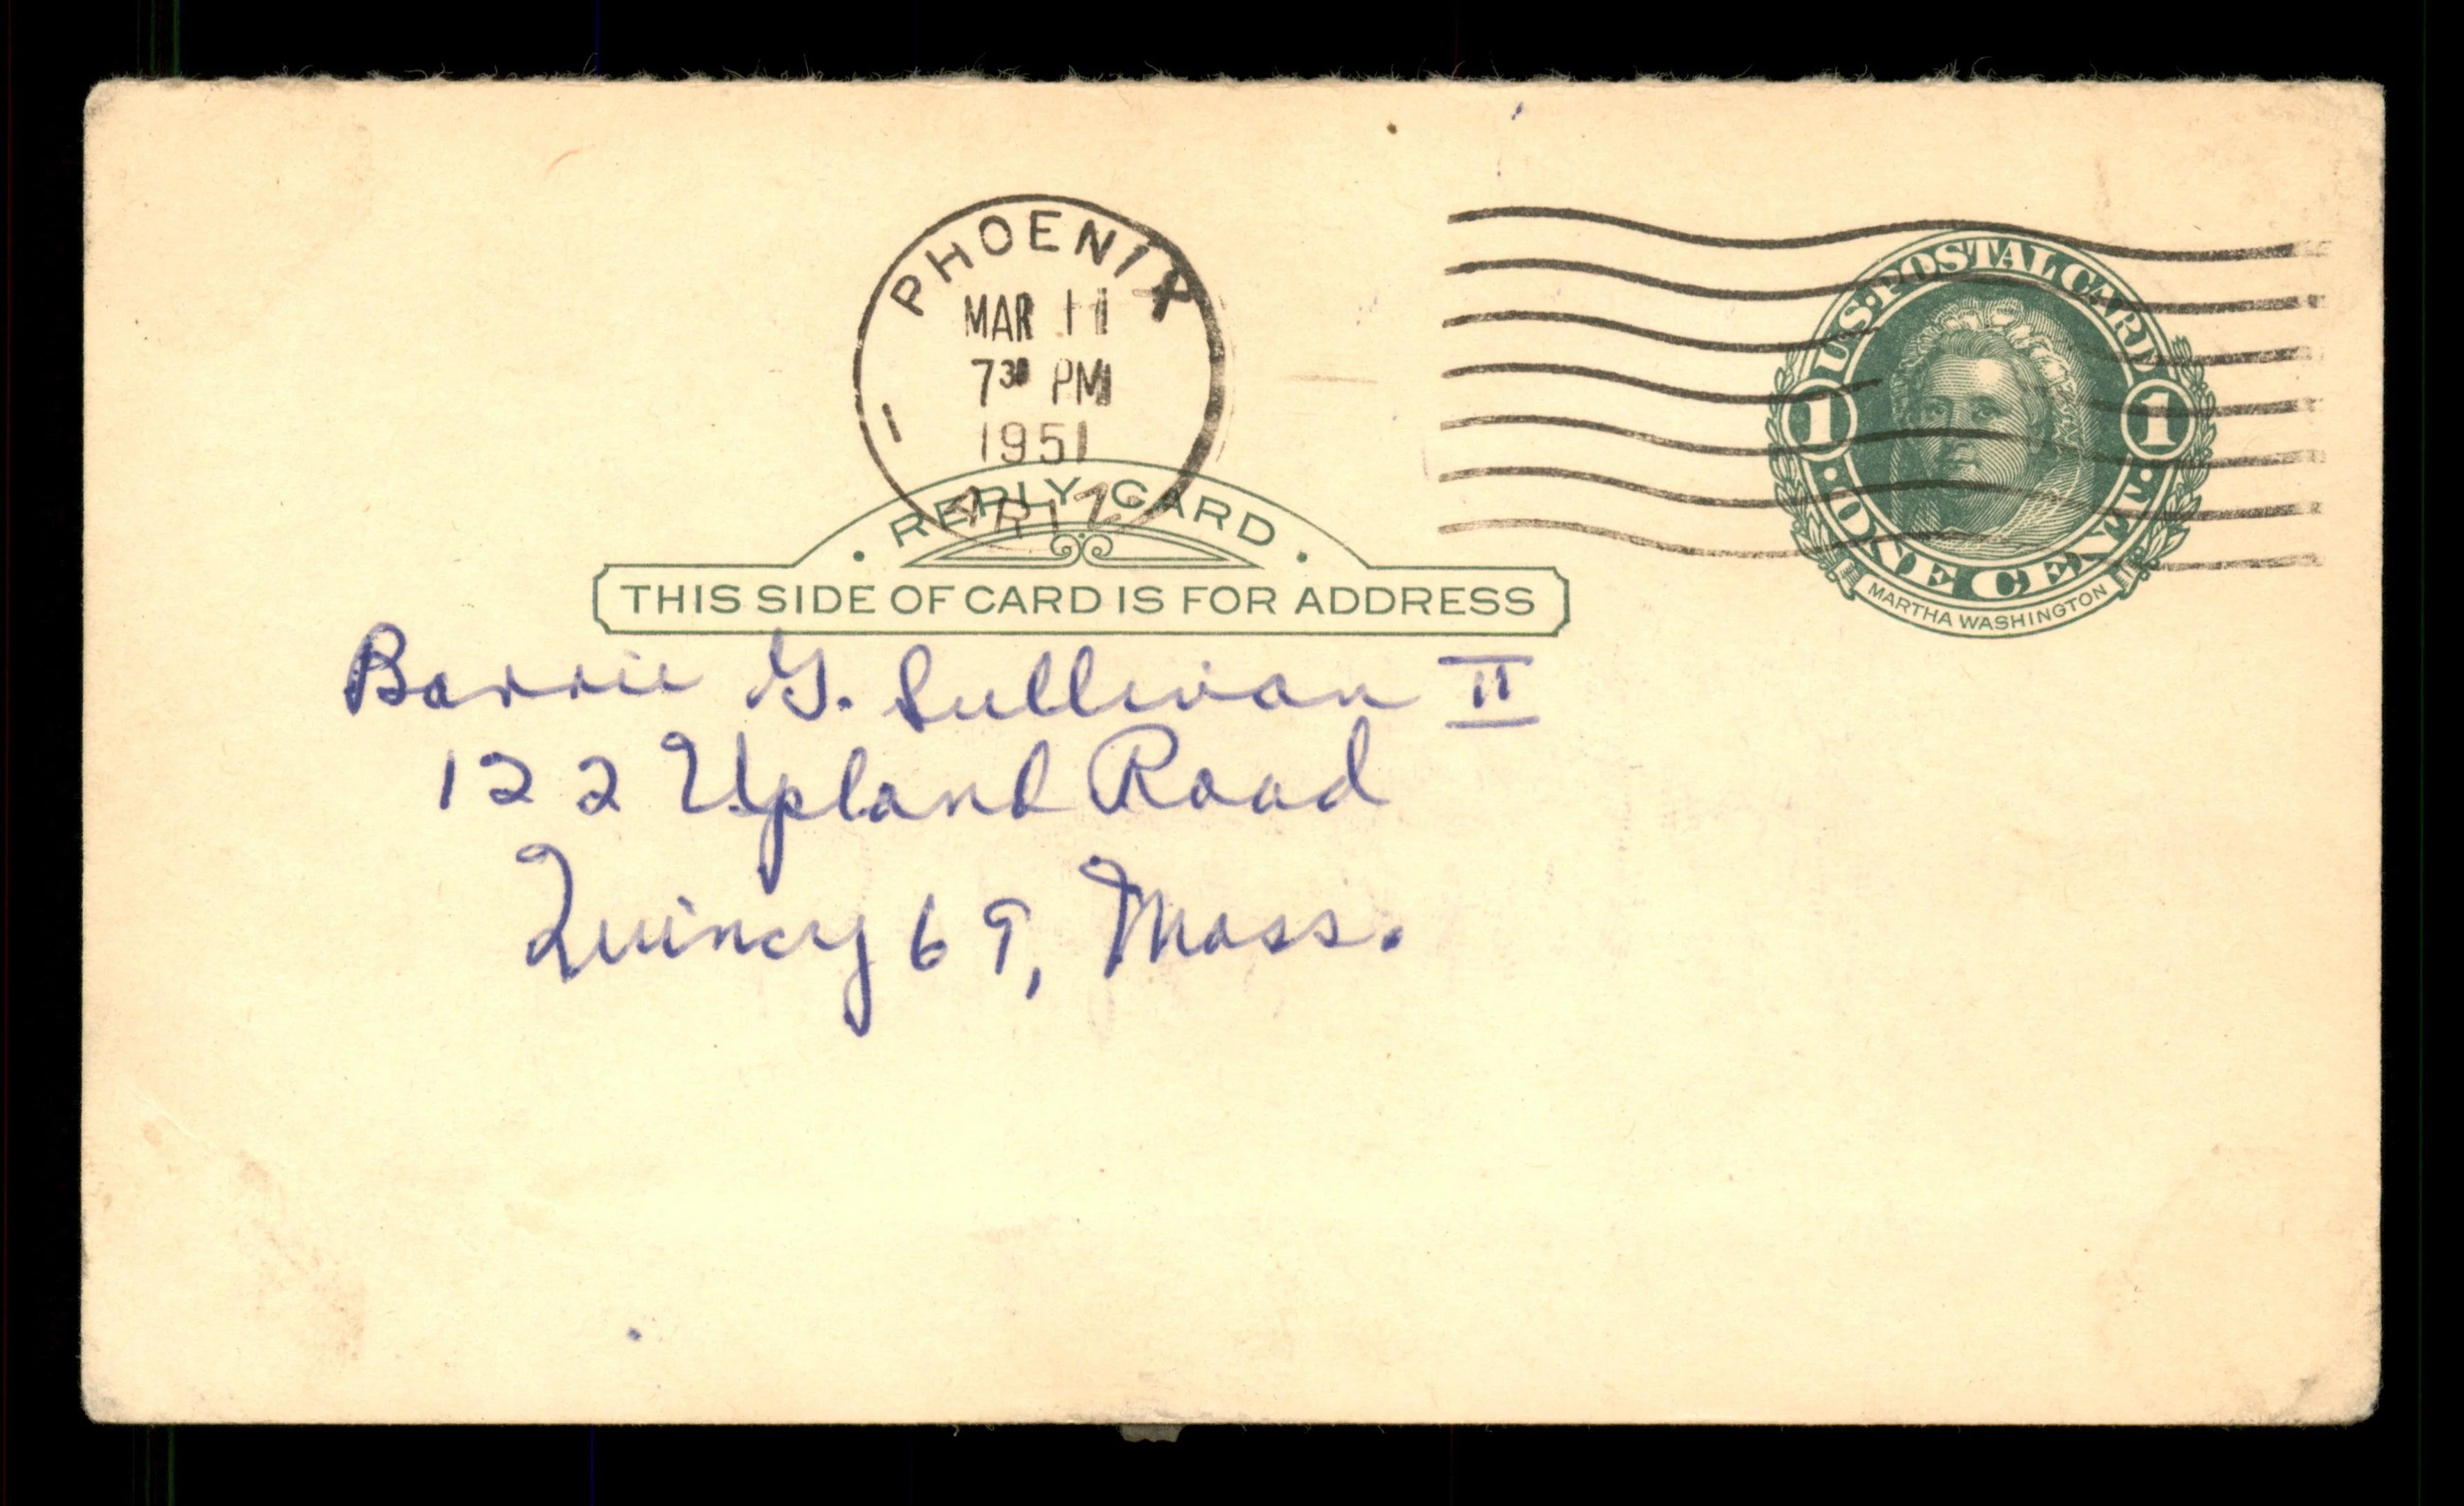 PHOENIX
MAR 11
7 30 PM
1951
1
ARIZ.
U.S. POSTAL CARD
1 1
· ONE CENT ·
MARTHA WASHINGTON
· REPLY CARD ·
THIS SIDE OF CARD IS FOR ADDRESS
Barrie G. Sullivan II
122 Upland Road
Quincy 69, Mass.